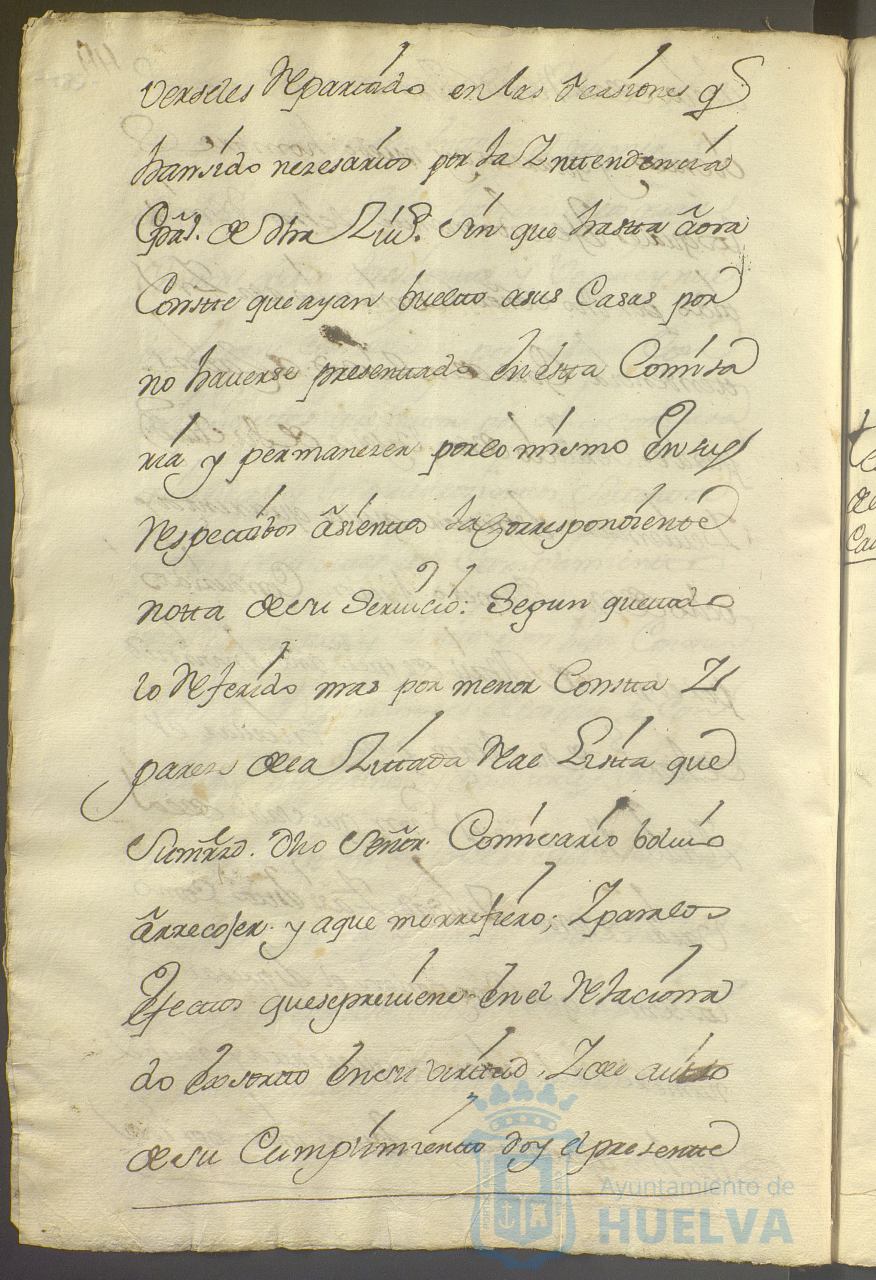 verseles Repartido en las Ocasiones q.
han sido nezesarios por la Inttendencia
Gral. de dha Ziud. sin que hastta aora
Constte que ayan bueltto asus Casas por
no hauerse presenttado En estta Comisa
ria y permanezer porlo mismo En sus
Respecttibos asienttos la Correspondientte
notta de su Seruicio: Segun que ttodo
lo Referido mas por menor Constta Y
pareze de la Zittada Real Listta que
dho Señor Comisario boluio
arrecojer y aque me rrefiero; Y para los
Efecttos que se preuiene En el Relaciona
do Exsortto En su virttud, Y de autto
de su Cumplimientto doy el presentte
te
de
Ca
Ayuntamiento de
HUELVA